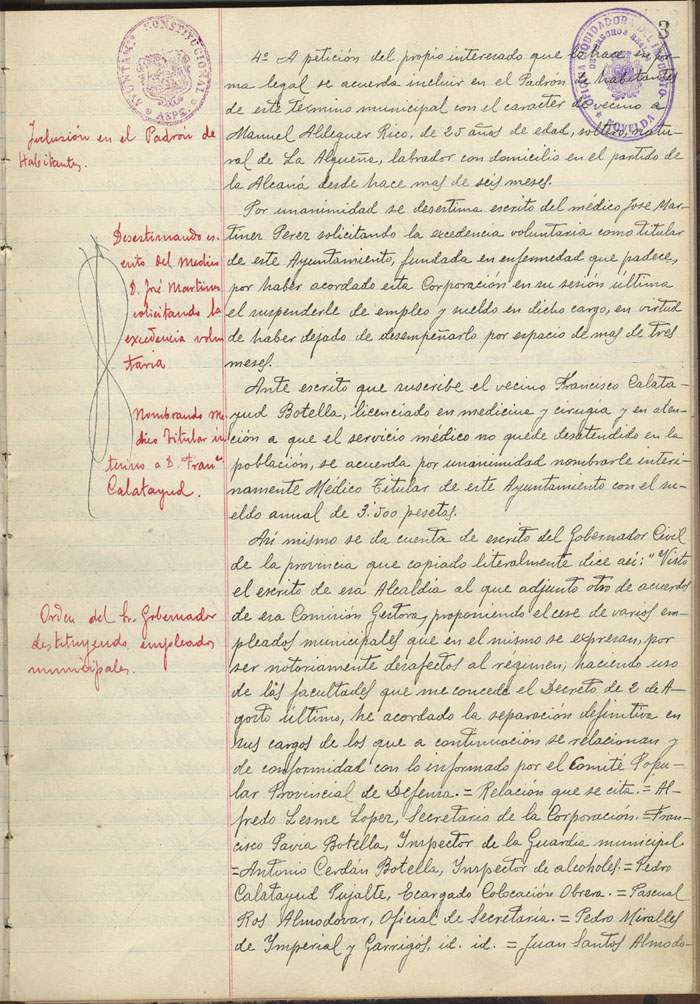 3
AYUNTAMTO CONSTITUCIONAL
ASPE
OFICINA LIQUIDADORA DEL IMPUESTO
DE DERECHOS REALES
NOVELDA
Inclusión en el Padrón de
Habitantes.
4º A petición del propio interesado que lo hace en for-
ma legal se acuerda incluir en el Padrón de habitantes
de este término municipal con el carácter de vecino a
Manuel Aldeguer Rico, de 25 años de edad, soltero, natu-
ral de La Algueña, labrador con domicilio en el partido de
la Alcaná desde hace mas de seis meses.
Desestimando es-
crito del Medico
D. José Martinez
solicitando la
excedencia volun
taria
Por unanimidad se desestima escrito del médico Jose Mar-
tinez Perez solicitando la excedencia voluntaria como titular
de este Ayuntamiento, fundada en enfermedad que padece,
por haber acordado esta Corporación en su sesión última
el suspenderle de empleo y sueldo en dicho cargo, en virtud
de haber dejado de desempeñarlo por espacio de mas de tres
meses.
Nombrando Mé
dico Titular in
terino a D. Franco
Calatayud.
Ante escrito que suscribe el vecino Francisco Calata-
yud Botella, licenciado en medicina y cirugia y en aten-
ción a que el servicio médico no quede desatendido en la
población, se acuerda por unanimidad nombrarle interi-
namente Médico Titular de este Ayuntamiento con el su-
eldo anual de 3'500 pesetas.
Orden del Sr. Gobernador
destituyendo empleados
municipales.
Asi mismo se da cuenta de escrito del Gobernador Civil
de la provincia que copiado literalmente dice asi: "Visto
el escrito de esa Alcaldía al que adjunto otro de acuerdos
de esa Comisión Gestora, proponiendo el cese de varios em-
pleados municipales que en el mismo se expresan, por
ser notoriamente desafectos al régimen, haciendo uso
de las facultades que me concede el Decreto de 2 de A-
gosto último, he acordado la separación definitiva en
sus cargos de los que a continuación se relacionan y
de conformidad con lo informado por el Comité Popu-
lar Provincial de Defensa.= Relación que se cita.= Al-
fredo Lesme Lopez, Secretario de la Corporación.=Fran-
cisco Pavia Botella, Inspector de la Guardia municipal
=Antonio Cerdán Botella, Inspector de alcoholes.=Pedro
Calatayud Pujalte, Ecargado Colocación Obrera.=Pascual
Ros Almodovar, Oficial de Secretaria.= Pedro Miralles
de Imperial y Garrigós, id. id. = Juan Santos Almodo-